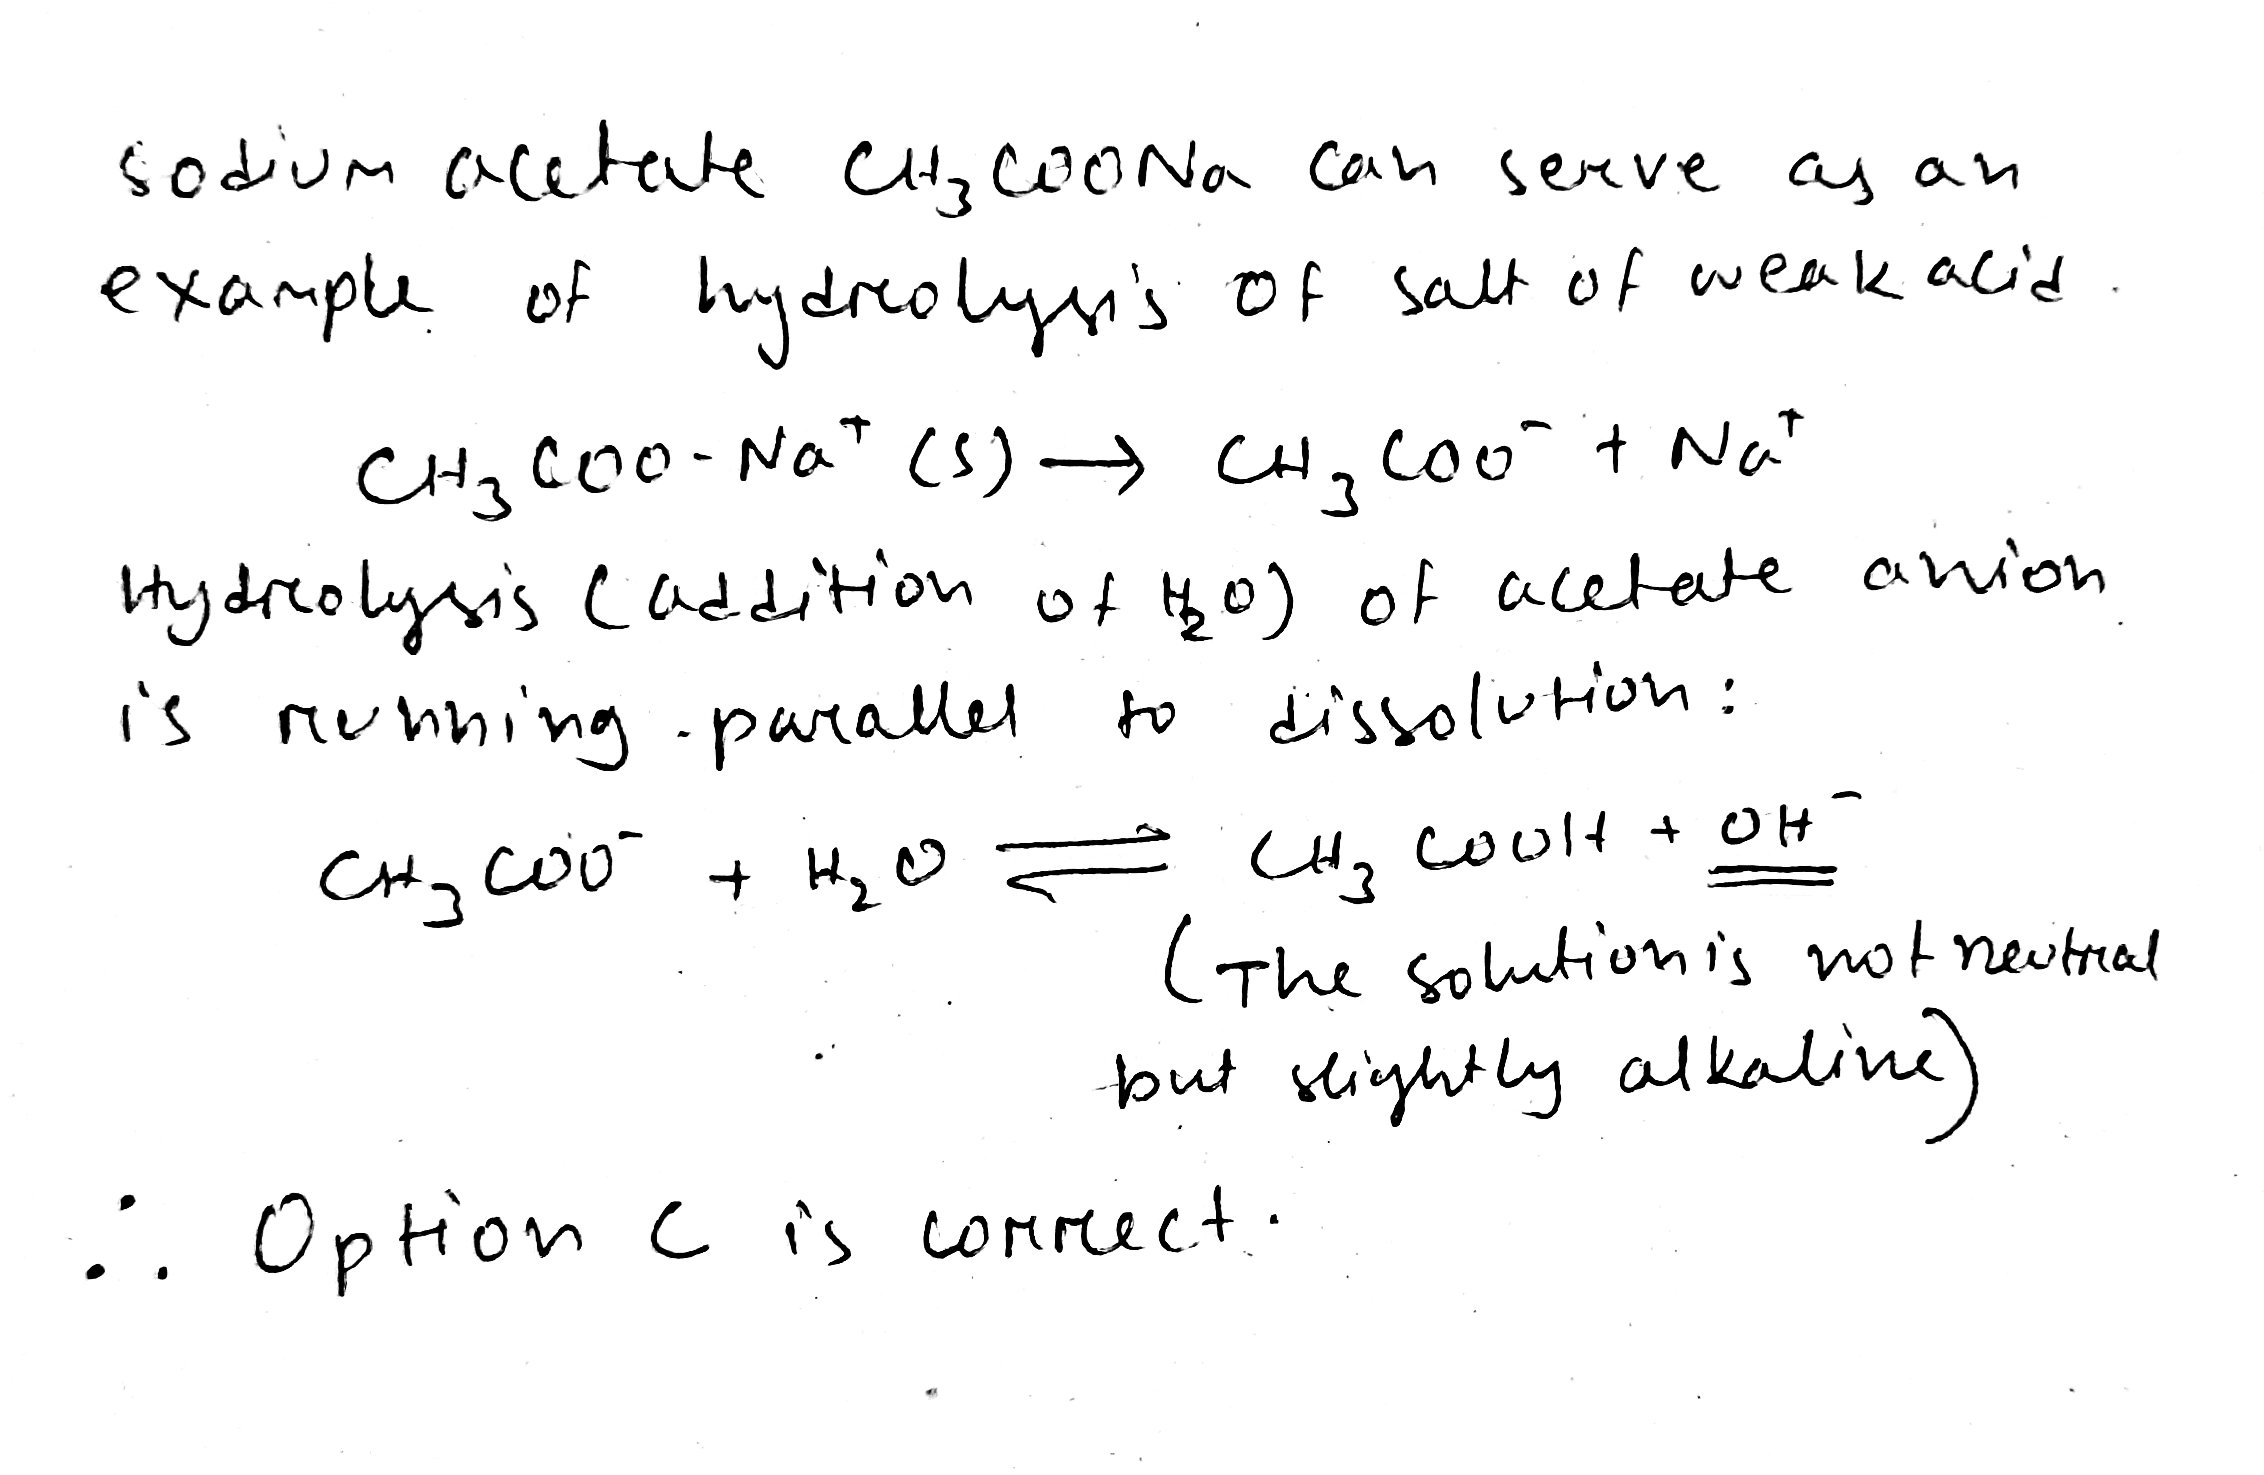 sodium acetate CH₃COONa can serve as an
example of hydrolysis of salt of weak acid.
CH₃COO-Na⁺ (s) → CH₃COO⁻ + Na⁺
Hydrolysis (addition of H₂O) of acetate anion
is running parallel to dissolution:
CH₃COO⁻ + H₂O ⇌ CH₃COOH + OH⁻
(The solution is not neutral
but slightly alkaline)
∴ Option C is correct.